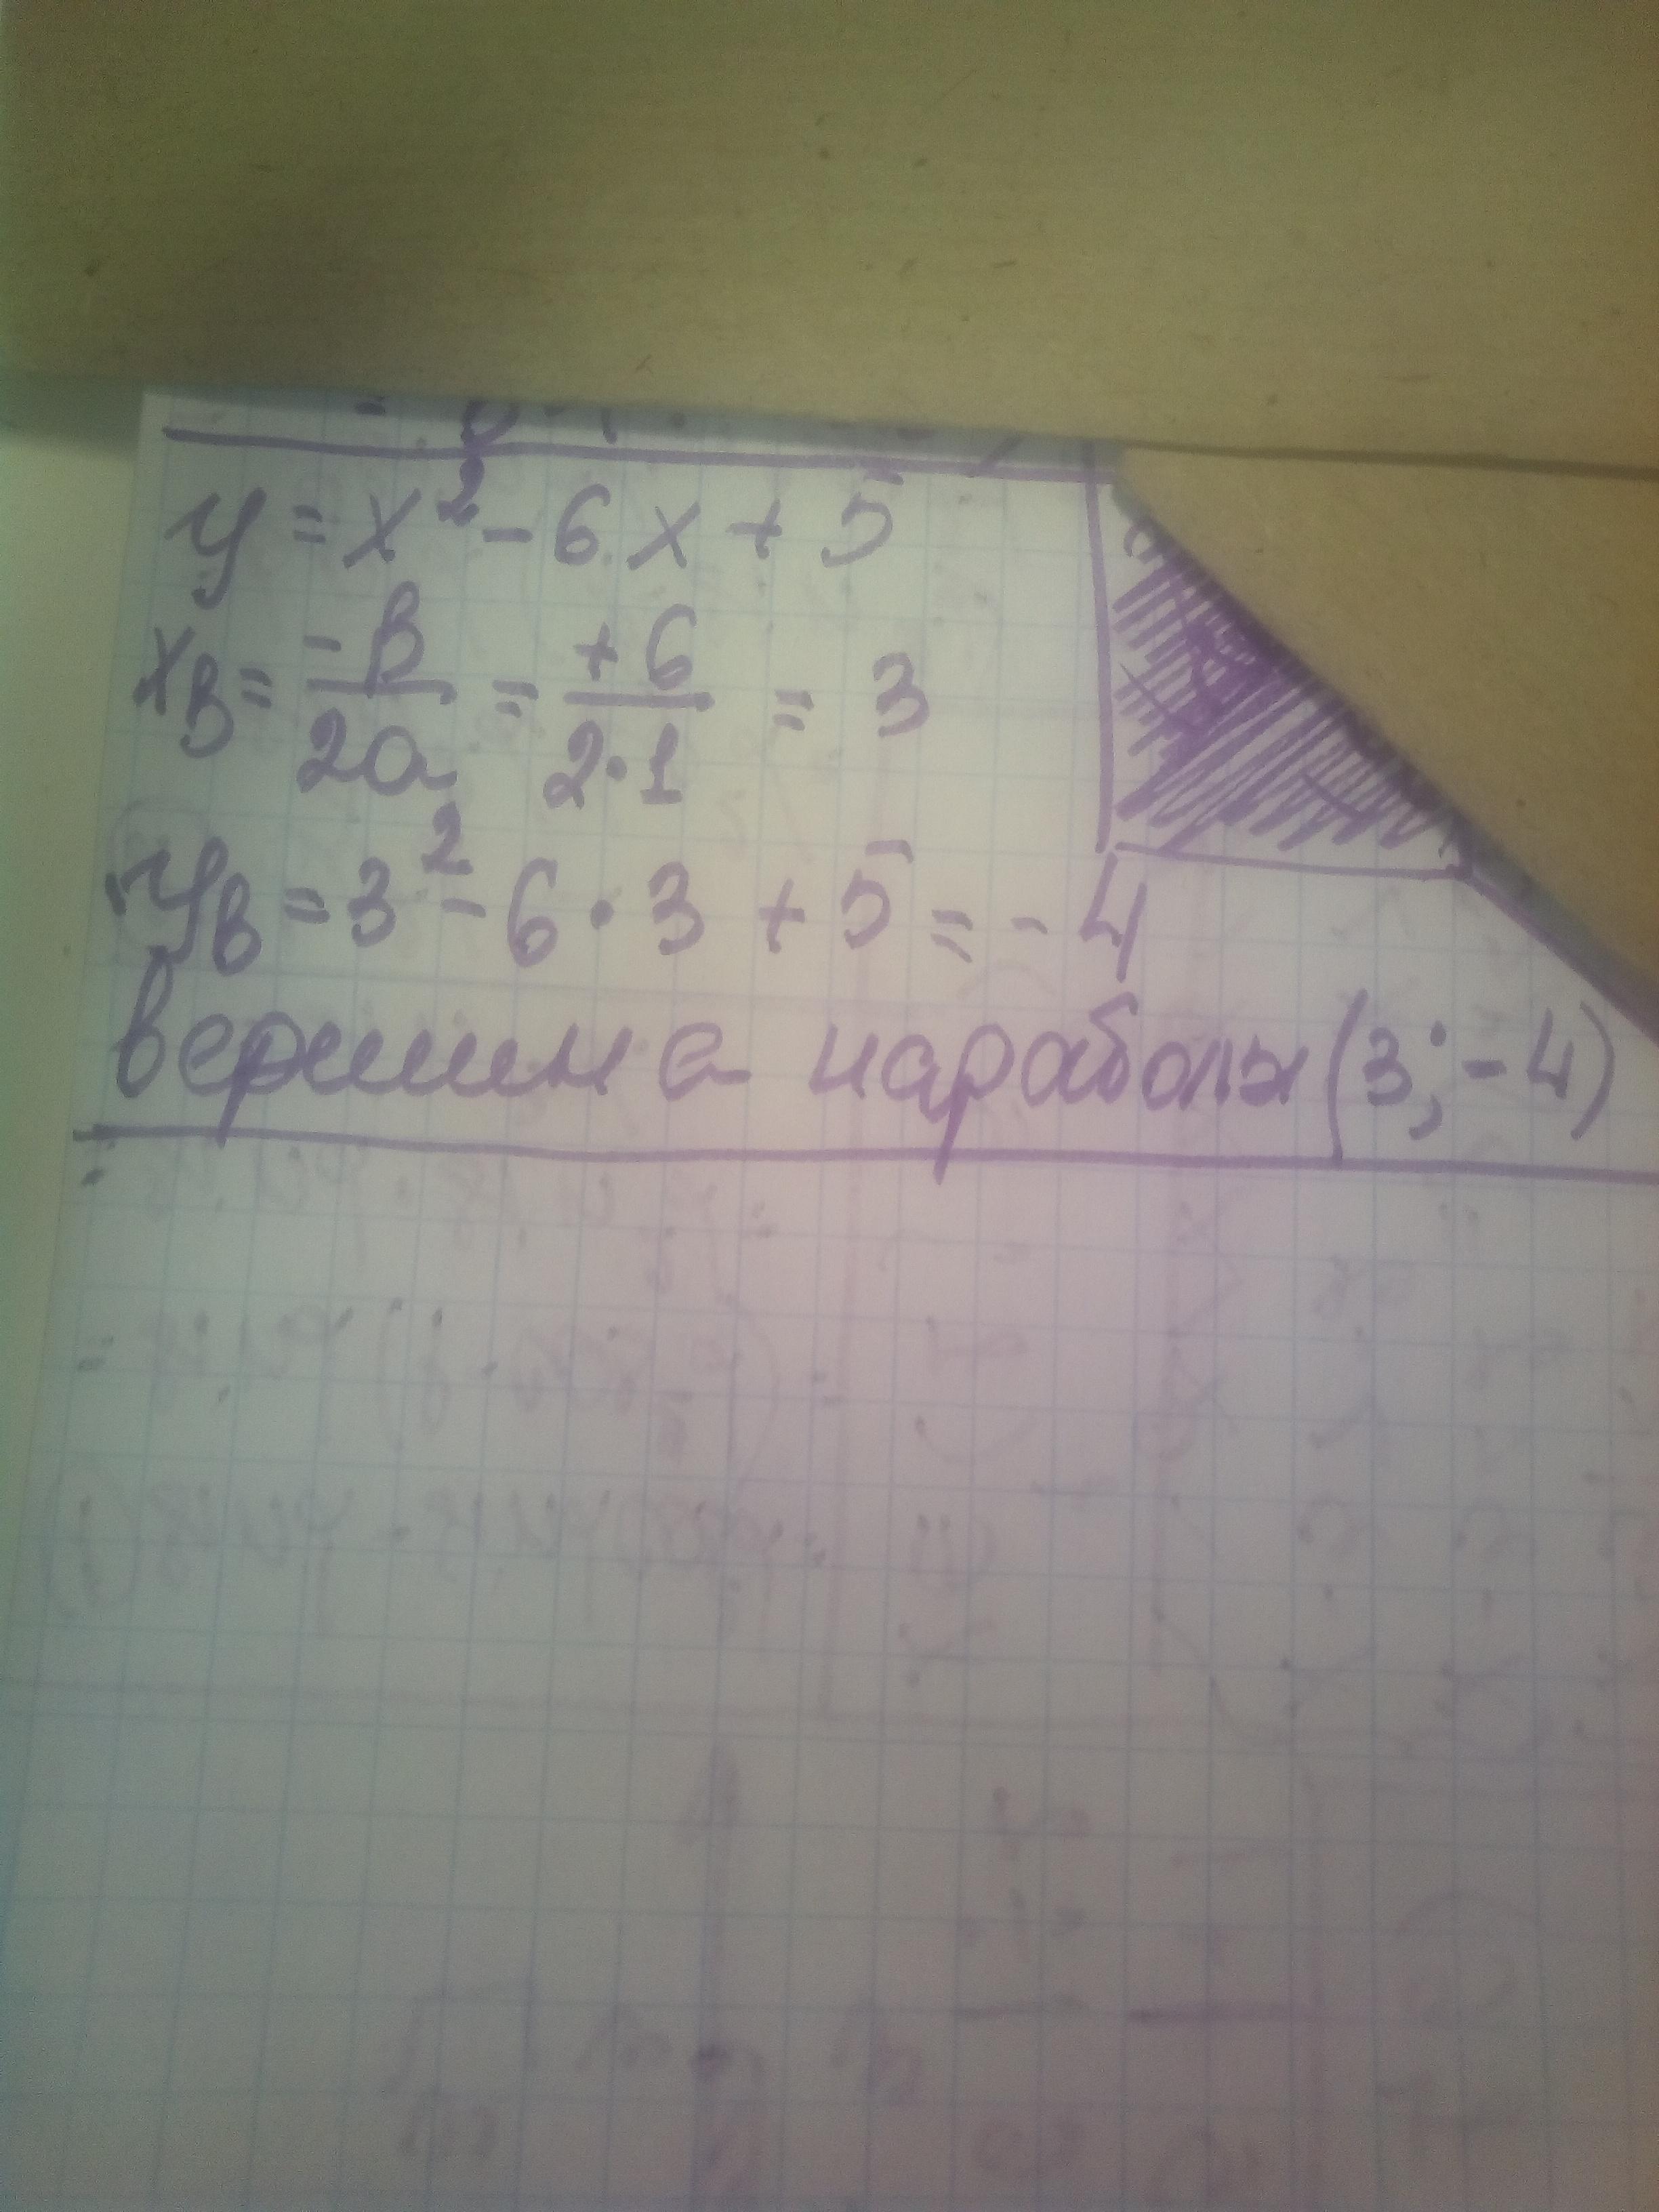 y = x² - 6x + 5
xв = -в/2a = +6/2·1 = 3
yв = 3² - 6·3 + 5 = -4
вершина параболы (3; -4)